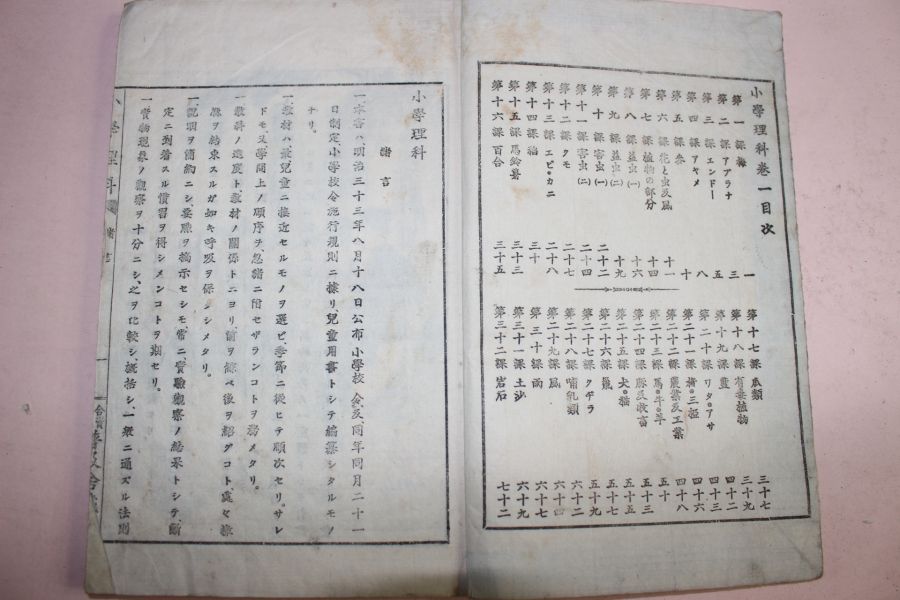 小學理科卷一目次
第一課 梅 一
第二課 アブラナ 三
第三課 エンドー 五
第四課 アヤメ 八
第五課 參 十
第六課 花と虫及風 十一
第七課 植物の部分 十四
第八課 益虫(一) 十六
第九課 益虫(二) 十九
第十課 害虫(一) 二十二
第十一課 害虫(二) 二十四
第十二課 クモ 二十七
第十三課 エビ・カニ 二十八
第十四課 稻 三十
第十五課 馬鈴薯 三十三
第十六課 百合 三十五
第十七課 瓜類 三十七
第十八課 有毒植物 三十九
第十九課 四十二
第二十課 ワタ・アサ 四十三
第二十一課 楮・三椏 四十六
第二十二課 農業及工業 四十八
第二十三課 馬・牛・羊 五十
第二十四課 豚及牧畜 五十三
第二十五課 犬・猫 五十五
第二十六課 五十七
第二十七課 クヂラ 五十九
第二十八課 哺乳類 六十二
第二十九課 風 六十四
第三十課 雨 六十七
第三十一課 土沙 六十九
第三十二課 岩石 七十二
小學理科
諸言
一、本書ハ明治三十三年八月十八日公布小學校令及、同年同月二十一
日制定、小學校令施行規則ニ據リ、兒童用書トシテ編纂シタルモノ
ナリ。
一、敎材ハ最兒童ニ接近セルモノヲ選ビ、季節ニ從ヒテ順次セリ。サレ
ドモ、又、學問上ノ順序ヲ、忽諸ニ附セザランコトヲ務メタリ。
一、敎科ノ進度ト、敎材ノ關係トニヨリ、前ヲ承ベ後ヲ紹グコト、處々
脈ヲ結束スルガ如キ呼吸ヲ保タシメタリ。
一、說明ヲ簡約ニシ、要點ヲ揭示セシモ、常ニ、實驗觀察ノ結果トシテ斷
定ニ到着スル慣習ヲ得シメンコトヲ期セリ。
一、實物現象ノ觀察ヲ十分ニシ、之ヲ比較シ概括シ、一般ニ通ズル法則
小學理科 諸言 一